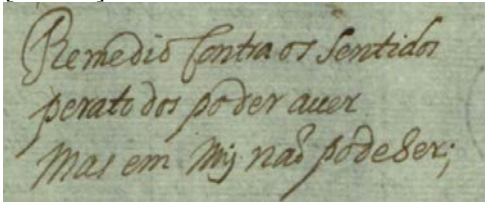 Remedio Contra os Sentidos
perato dos poder auer
Mas em Mij naõ pode Ser;